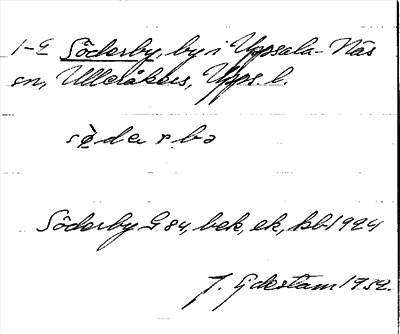 1-E Söderby, by i Uppsala-Näs
sn, Ulleråkers, Upps. l.
sø̀derbə
Söderby G 84, bek, ek, kb 1924
J. Ejdestam 1952.